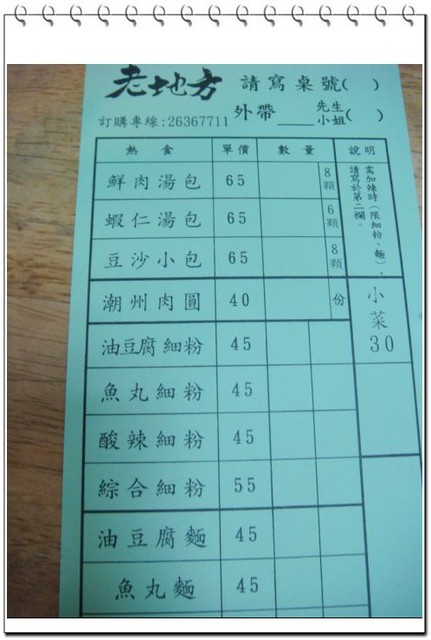 老地方 請寫桌號( )
訂購專線:26367711 外帶____先生小姐( )
熱食 單價 數量 說明
鮮肉湯包 65 8顆
蝦仁湯包 65 6顆
豆沙小包 65 8顆
需加辣時(限細粉、麵),
請寫於第二欄。
潮州肉圓 40 份
小菜
30
油豆腐細粉 45
魚丸細粉 45
酸辣細粉 45
綜合細粉 55
油豆腐麵 45
魚丸麵 45